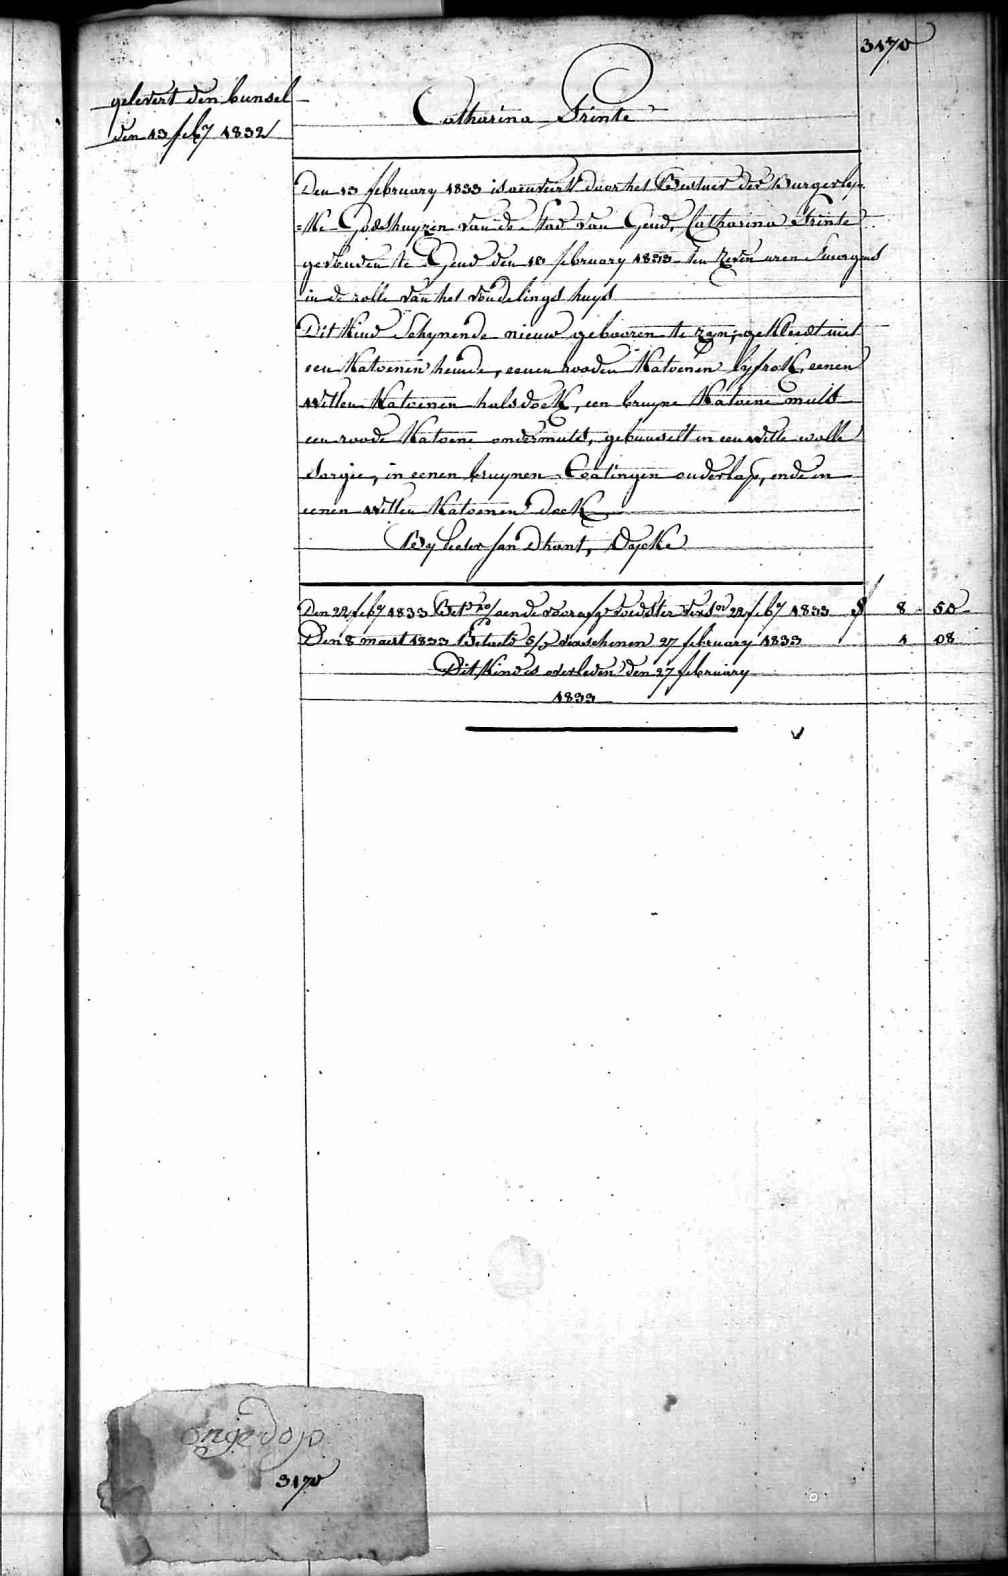 3170
gelevert den bunsel
den 13 feb̃y 1832
Catharina Trinte
Den 13 february 1833 is aenveirt door het Bestuer der Burgerly=
=ke Godshuyzen van de Stad van Gend, Catharina Trinte
gevonden te Gend den 13 february 1833 ten zeven uren smorgens
in de rolle van het vondelings huys
Dit Kind schynende nieuw gebooren te zyn; gekleedt met
een Katoenen hemde, eenen rooden Katoenen lyfrok, eenen
witten Katoenen halsdoek, een bruyne Katoene muts
een roode Katoene ondermuts, gebunselt in een witte wolle
sargie, in eenen bruynen Coatingen onderlap, ende in
eenen witten Katoenen doek
By Pieter Jan Dhont, Dycke
Den 22 feb̃y 1833 voedster 22 feb̃y 1833 8 50
Den 8 maert 1833 Betaelt verschenen 27 february 1833 1 08
Dit Kind is overleden den 27 february
1833
ongedoopt
3170